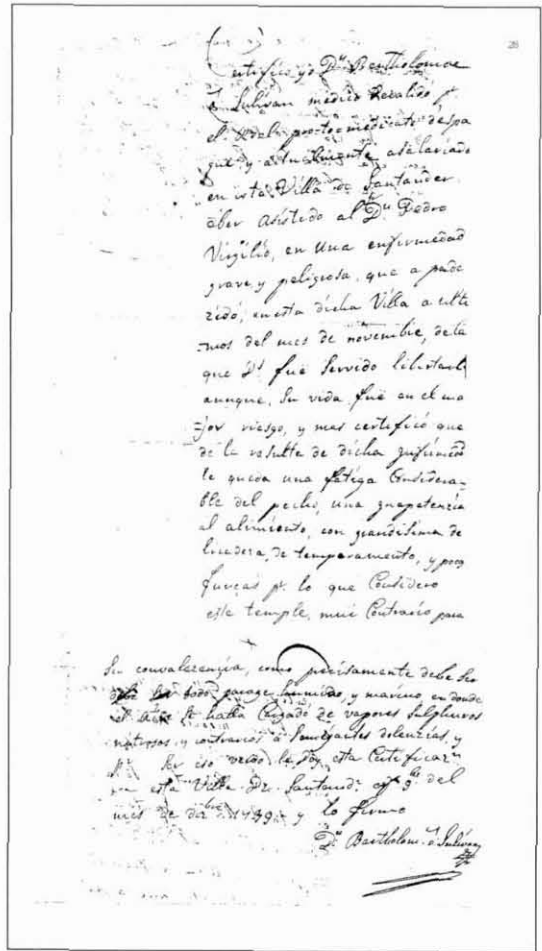 28
Certifico yo Dn. Bartholomae
ô Sulivan medico Revalido pr.
el Rl. de la protomedicato despa
gue y actualmente asalariado
en ista Villa de Santander
aber asistido al Dn. Pedro
Virgilio, en una enfirmedad
grave y peligrosa, que a pade
zido, en esta dicha Villa a ulti
-mos del mes de novembie, dela
que Ds. fue Servido libertarle
aunque, su vida fue en el ma
-jor riesgo, y mas certificó que
de la resulte de dicha
le queda una fatiga Considera-
ble del pecho, una ynapetenzia
al alimiento, con grandisima de
licadeza, de temperamento, y poca
fuerças pr. lo que Considero
este temple, mui Contrario para
su convalerenzia, como precisamente debe ser
todo parage humido, y marino, en donde
el se halla Cargado de vapores Sulphuros
nitrosos, y contrarios a Semejantes dolenzias, y
pr. ser eso le doy esta Certificazn.
en esta Villa De Santandr. del
mes de 1799 y lo firmo
Dn. Bartholom. ô Sulivan